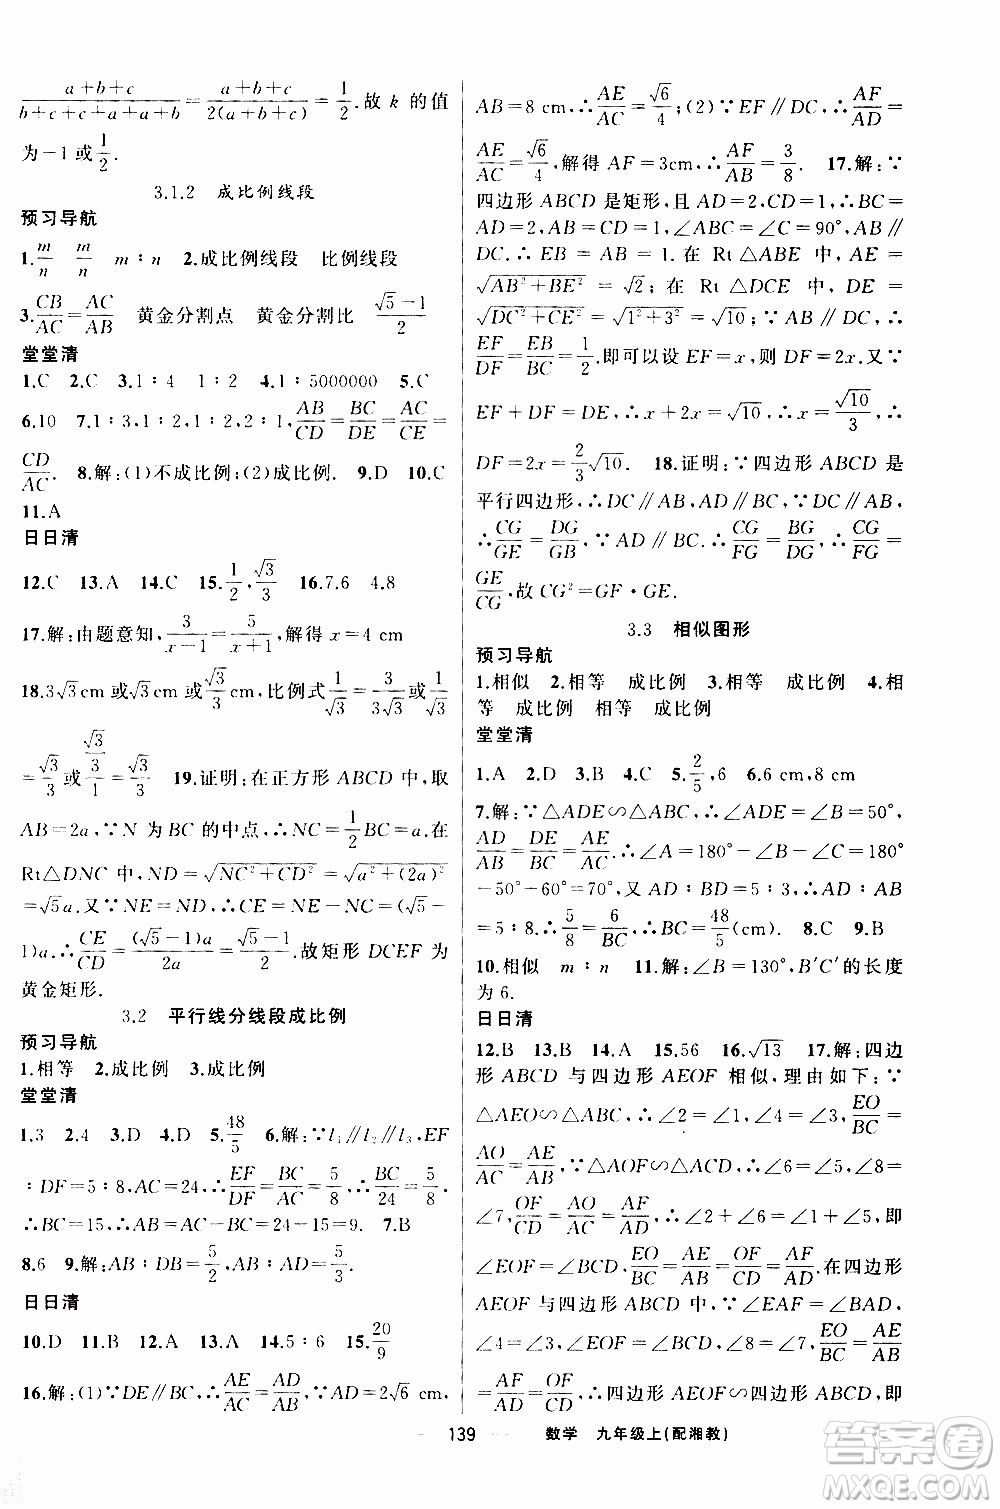 (a+b+c)/(b+c+c+a+a+b)=(a+b+c)/(2(a+b+c))=1/2.故 k 的值
为-1 或1/2.
3.1.2 成比例线段
预习导航
1.m/n m/n m∶n 2.成比例线段 比例线段
3.CB/AC=AC/AB 黄金分割点 黄金分割比 (√5-1)/2
堂堂清
1.C 2.C 3.1∶4 1∶2 4.1∶5000000 5.C
6.10 7.1∶3,1∶2,1∶2,1∶3,AB/CD=BC/DE=AC/CE=
CD/AC. 8.解:(1)不成比例;(2)成比例. 9.D 10.C
11.A
日日清
12.C 13.A 14.C 15.1/2,√3/3 16.7.6 4.8
17.解:由题意知,3/(x-1)=5/(x+1),解得 x=4 cm
18.3√3cm 或√3cm 或√3/3cm,比例式1/√3=3/(3√3)或1/√3=
√3/3或(√3/3)/1=√3/3 19.证明:在正方形 ABCD 中,取
AB=2a,∵N 为 BC 的中点,∴NC=1/2BC=a.在
Rt△DNC 中,ND=√(NC²+CD²)=√(a²+(2a)²)
=√5a.又∵NE=ND,∴CE=NE-NC=(√5-
1)a.∴CE/CD=(√5-1)a/2a=(√5-1)/2.故矩形 DCEF 为
黄金矩形.
3.2 平行线分线段成比例
预习导航
1.相等 2.成比例 3.成比例
堂堂清
1.3 2.4 3.D 4.D 5.48/5 6.解:∵l₁∥l₂∥l₃,EF
∶DF=5∶8,AC=24,∴EF/DF=BC/AC=5/8,∴BC/24=5/8.
∴BC=15,∴AB=AC-BC=24-15=9. 7.B
8.6 9.解:AB∶DB=5/2,AB∶AD=5/3.
日日清
10.D 11.B 12.A 13.A 14.5∶6 15.20/9
16.解:(1)∵DE∥BC,∴AE/AC=AD/AB,∵AD=2√6 cm,
AB=8 cm,∴AE/AC=√6/4;(2)∵EF∥DC,∴AF/AD=
AE/AC=√6/4,解得 AF=3cm,∴AF/AB=3/8. 17.解:∵
四边形 ABCD 是矩形,且 AD=2,CD=1,∴BC=
AD=2,AB=CD=1,∠ABC=∠C=90°,AB∥
DC.∴EB=AB=1.在 Rt△ABE 中,AE=
√(AB²+BE²)=√2;在 Rt△DCE 中,DE=
√(DC²+CE²)=√(1²+3²)=√10,∵AB∥DC,∴
EF/DF=EB/BC=1/2.即可以设 EF=x,则 DF=2x.又∵
EF+DF=DE,∴x+2x=√10,∴x=√10/3,∴
DF=2x=2/3√10. 18.证明:∵四边形 ABCD 是
平行四边形,∴DC∥AB,AD∥BC,∵DC∥AB,
∴CG/GE=DG/GB,∵AD∥BC.∴CG/FG=BG/DG,∴CG/FG=
GE/CG,故 CG²=GF·GE.
3.3 相似图形
预习导航
1.相似 2.相等 成比例 3.相等 成比例 4.相
等 成比例 相等 成比例
堂堂清
1.A 2.D 3.B 4.C 5.2/5,6 6.6 cm,8 cm
7.解:∵△ADE∽△ABC,∴∠ADE=∠B=50°,
AD/AB=DE/BC=AE/AC.∴∠A=180°-∠B-∠C=180°
-50°-60°=70°,又∵AD∶BD=5∶3,∴AD∶AB
=5∶8.∴5/8=6/BC,∴BC=48/5(cm). 8.C 9.B
10.相似 m∶n 11.解:∠B=130°,B′C′的长度
为 6.
日日清
12.B 13.B 14.A 15.56 16.√13 17.解:四边
形 ABCD 与四边形 AEOF 相似,理由如下:∵
△AEO∽△ABC,∴∠2=∠1,∠3=∠4,EO/BC=
AO/AC=AE/AB,∵△AOF∽△ACD,∴∠6=∠5,∠8=
∠7,OF/CD=AO/AC=AF/AD,∴∠2+∠6=∠1+∠5,即
∠EOF=∠BCD,∴EO/BC=AE/AB=OF/CD=AF/AD.在四边形
AEOF 与四边形 ABCD 中,∵∠EAF=∠BAD,
∠4=∠3,∠EOF=∠BCD,∠8=∠7,EO/BC=AE/AB
=AF/AD=OF/CD,∴四边形 AEOF∽四边形 ABCD,即
139 数学 九年级上(配湘教)
答案圈
MXQE.COM